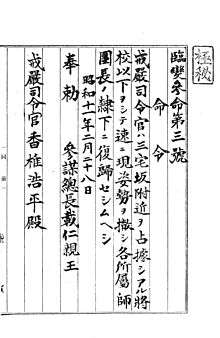 極秘
臨變參命第三號
命令
戒嚴司令官ハ三宅坂附近ヲ占據シアル將
校以下ヲシテ速ニ現姿勢ヲ撤シ各所屬師
團長ノ隷下ニ復歸セシムヘシ
奉勅　參謀總長載仁親王
昭和十一年二月二十八日
戒嚴司令官香椎浩平殿